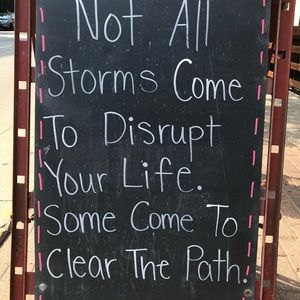 Not All
Storms Come
To Disrupt
Your Life.
Some Come To
Clear The Path.